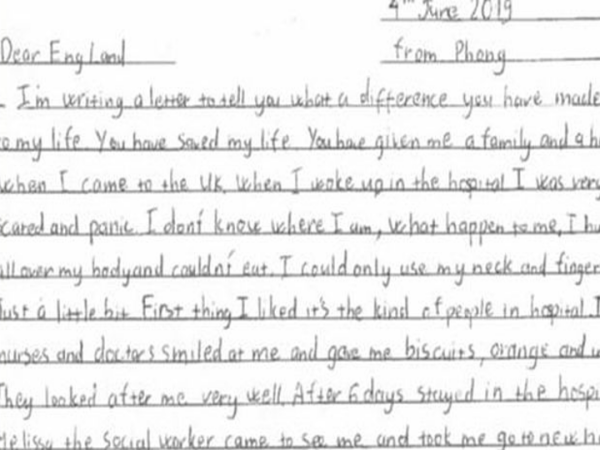 4th June 2019
Dear England
from Phong
I'm writing a letter to tell you what a difference you have made
to my life. You have saved my life. You have given me a family and a
when I came to the UK. When I woke up in the hospital I was very
scared and panic. I don't know where I am, what happen to me, I hu
all over my body and couldn't eat. I could only use my neck and finger
Just a little bit First thing I liked it's the kind of people in hospital.
nurses and doctors smiled at me and gave me biscuits, orange and
They looked after me very well. After 6 days stayed in the hospi
Melissa the social worker came to see me and took me go to new h